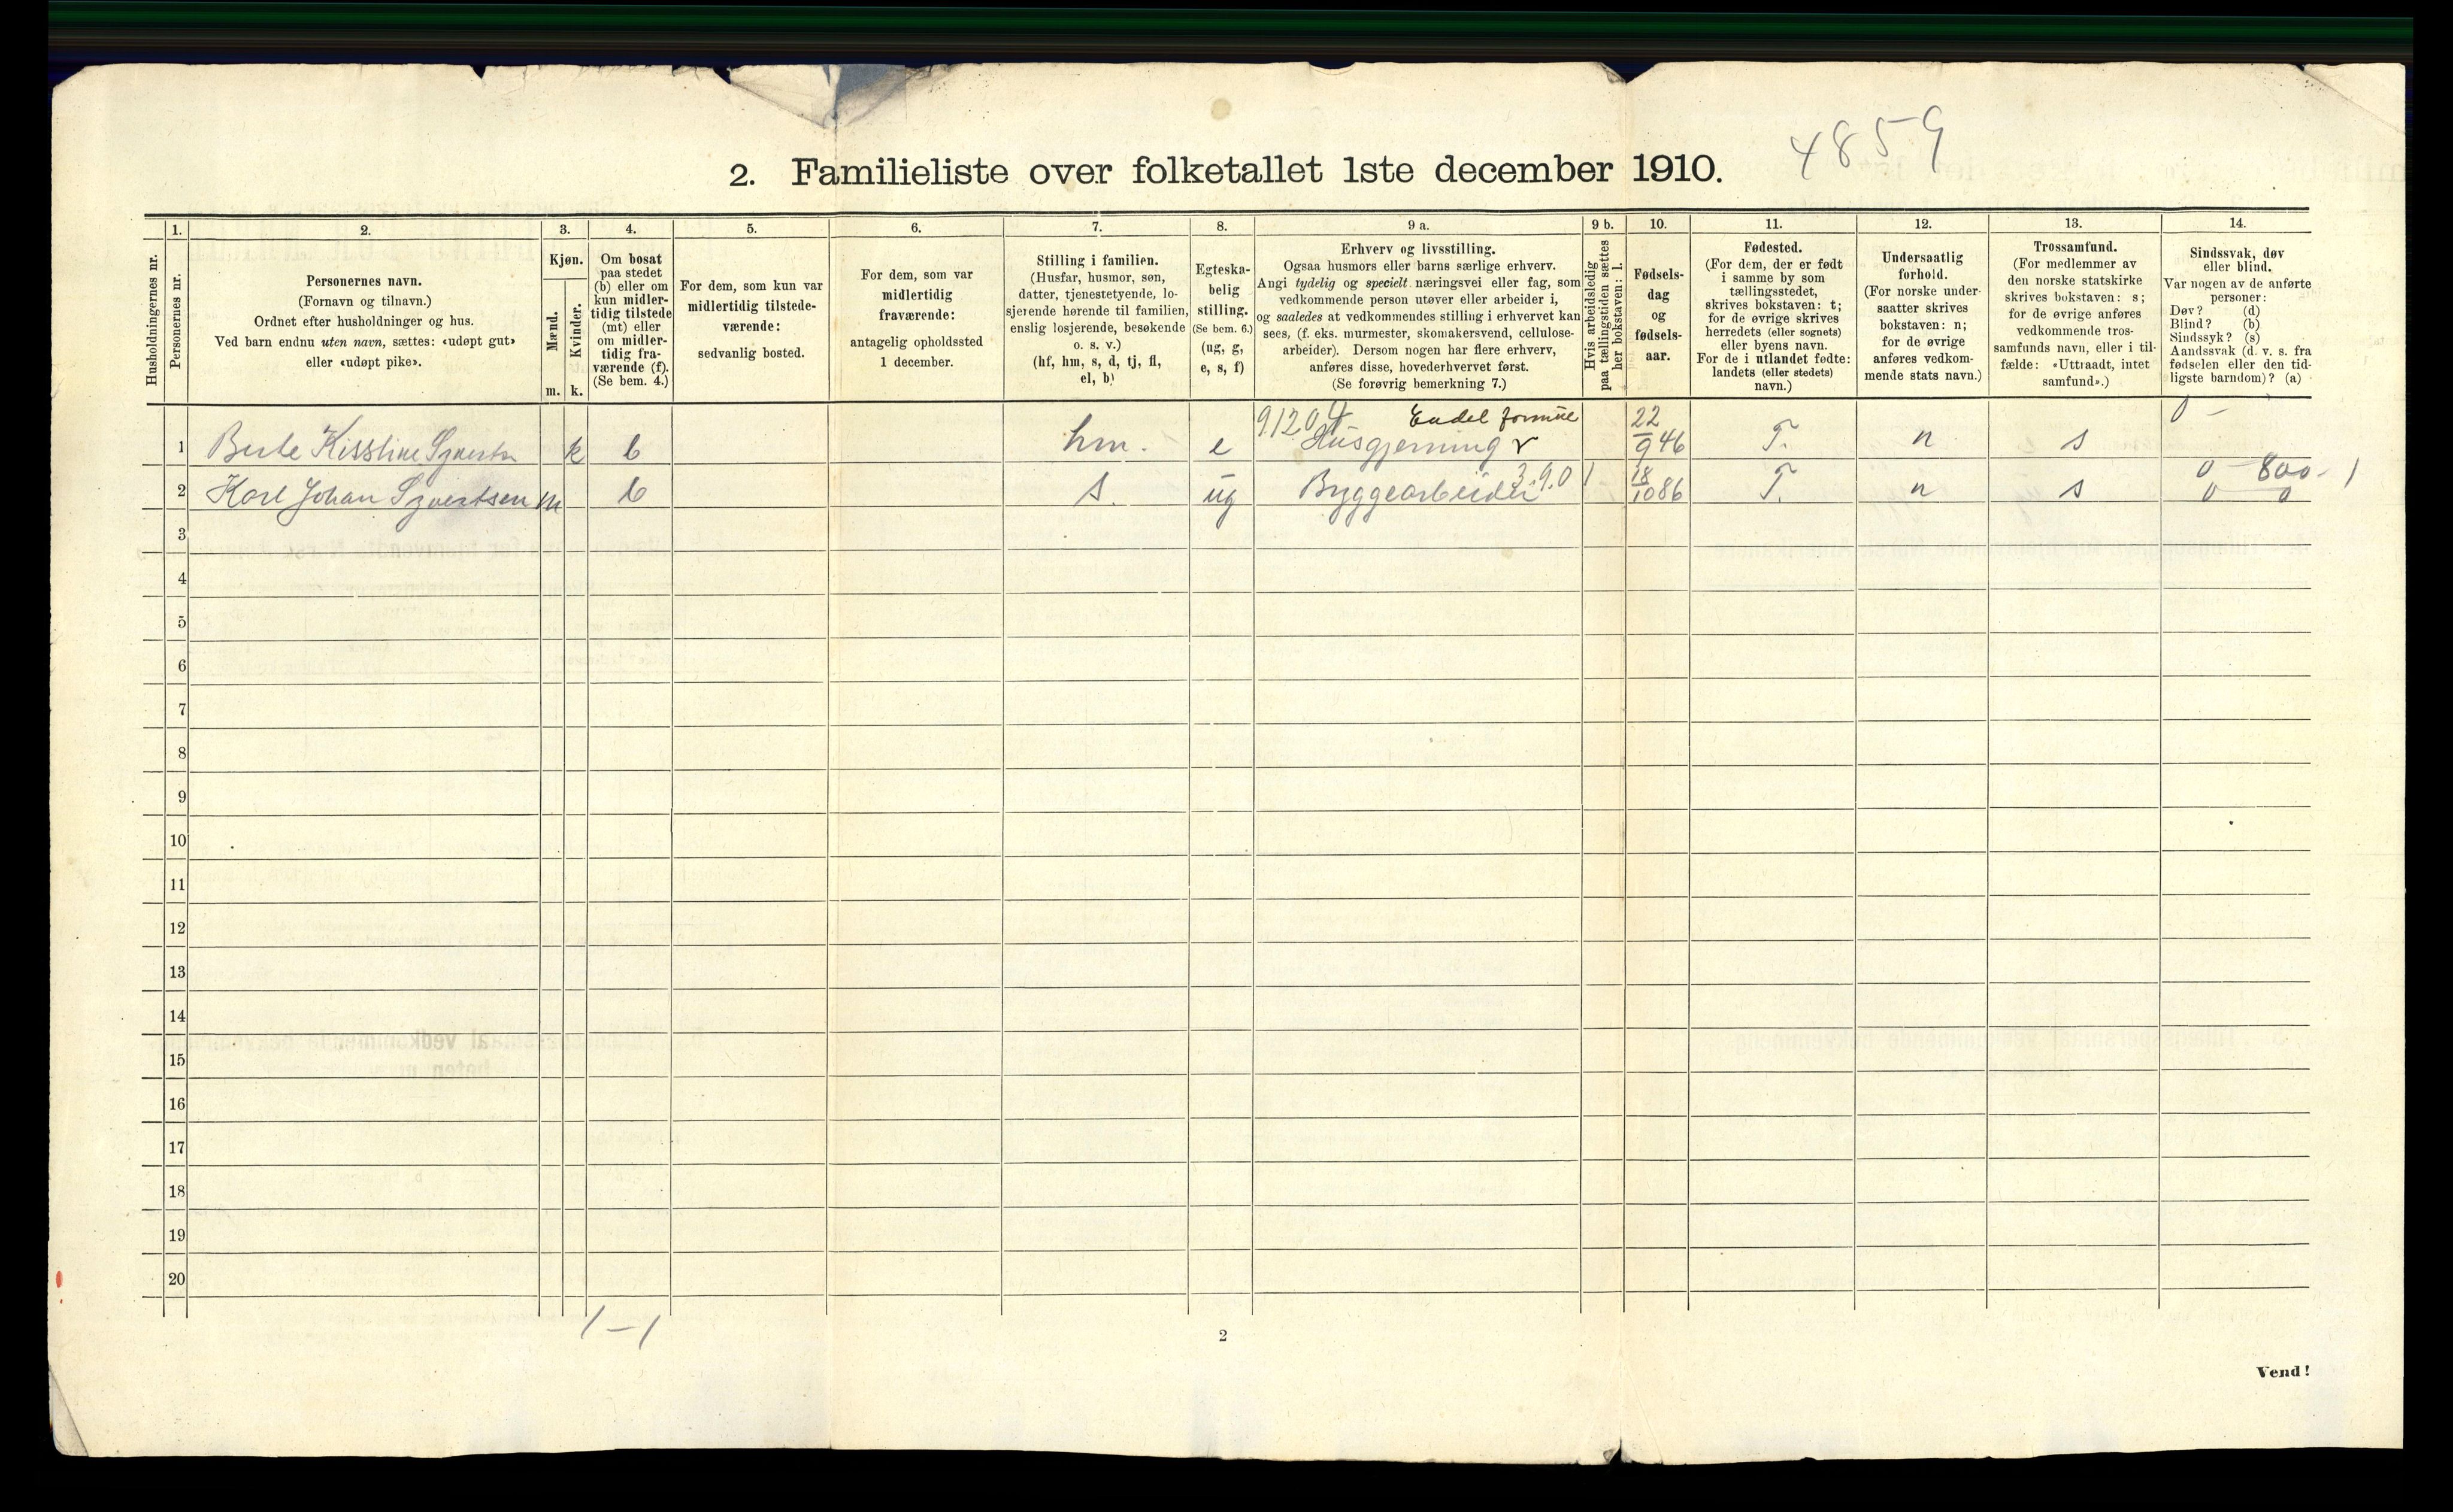 4859
2. Familieliste over folketallet 1ste december 1910.
1. 2. 3. 4. 5. 6. 7. 8. 9 a. 9 b. 10. 11. 12. 13. 14.
Husholdningernes nr.
Personernes nr.
Personernes navn.
(Fornavn og tilnavn.)
Ordnet efter husholdninger og hus.
Ved barn endnu uten navn, sættes: «udøpt gut»
eller «udøpt pike».
Kjøn.
Mænd.
m.
Kvinder.
k.
Om bosat
paa stedet
(b) eller om
kun midler-
tidig tilstede
(mt) eller
om midler-
tidig fra-
værende (f).
(Se bem. 4.)
For dem, som kun var
midlertidig tilstede-
værende:
sedvanlig bosted.
For dem, som var
midlertidig
fraværende:
antagelig opholdssted
1 december.
Stilling i familien.
(Husfar, husmor, søn,
datter, tjenestetyende, lo-
sjerende hørende til familien,
enslig losjerende, besøkende
o. s. v.)
(hf, hm, s, d, tj, fl,
el, b)
Egteska-
belig
stilling.
(Se bem. 6.)
(ug, g,
e, s, f)
Erhverv og livsstilling.
Ogsaa husmors eller barns særlige erhverv.
Angi tydelig og specielt næringsvei eller fag, som
vedkommende person utøver eller arbeider i,
og saaledes at vedkommendes stilling i erhvervet kan
sees, (f. eks. murmester, skomakersvend, cellulose-
arbeider). Dersom nogen har flere erhverv,
anføres disse, hovederhvervet først.
(Se forøvrig bemerkning 7.)
Hvis arbeidsledig
paa tællingstiden sættes
her bokstaven: l.
Fødsels-
dag
og
fødsels-
aar.
Fødested.
(For dem, der er født
i samme by som
tællingsstedet,
skrives bokstaven: t;
for de øvrige skrives
herredets (eller sognets)
eller byens navn.
For de i utlandet fødte:
landets (eller stedets)
navn.)
Undersaatlig
forhold.
(For norske under-
saatter skrives
bokstaven: n;
for de øvrige
anføres vedkom-
mende stats navn.)
Trossamfund.
(For medlemmer av
den norske statskirke
skrives bokstaven: s;
for de øvrige anføres
vedkommende tros-
samfunds navn, eller i til-
fælde: «Uttraadt, intet
samfund».)
Sindssvak, døv
eller blind.
Var nogen av de anførte
personer:
Døv? (d)
Blind? (b)
Sindssyk? (s)
Aandssvak (d. v. s. fra
fødselen eller den tid-
ligste barndom)? (a)
9.120 4 Endel formue 22 0 -
1 k b hm. e Husgjerning 9 46 T. n s
3.9.0 1 18 0 - 800 - 1
2 Karl Johan Syvertsen m b s. ug Byggearbeider 10 86 T. n s 0 0
3
4
5
6
7
8
9
10
11
12
13
14
15
16
17
18
19
20
1-1
2
Vend!